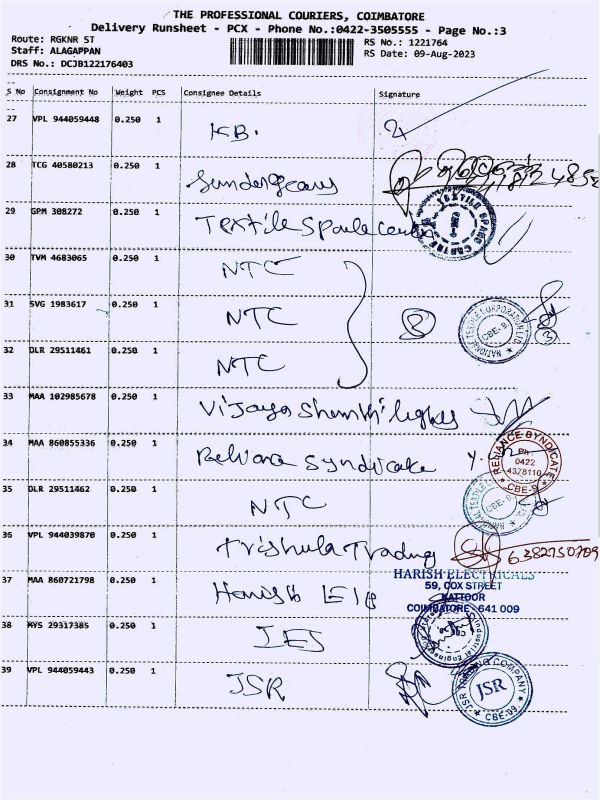 THE PROFESSIONAL COURIERS, COIMBATORE
Delivery Runsheet - PCX - Phone No.:0422-3505555 - Page No.:3
Route: RGKNR ST
Staff: ALAGAPPAN
DRS No.: DCJB122176403
RS No.: 1221764
RS Date: 09-Aug-2023
S No Consignment No Weight PCS Consignee Details Signature
27 VPL 944059448 0.250 1 KB.
28 TCG 40580213 0.250 1
29 GPM 308272 0.250 1 Textile Spare Center
TEXTILE SPARE
30 TVM 4683065 0.250 1 NTC
31 SVG 1983617 0.250 1 NTC
NATIONAL TEXTILE CORPORATION LTD.
CBE-9
3
32 DLR 29511461 0.250 1 NTC
33 MAA 102985678 0.250 1 Vijaya Shanthi lights
34 MAA 860855336 0.250 1 Reliance Syndicate
RELIANCE SYNDICATE
Ph:
0422
4378110
CBE-9
35 DLR 29511462 0.250 1 NTC
36 VPL 944039870 0.250 1 Trishula Trading 6382750709
37 MAA 860721798 0.250 1 Harish Ele
HARISH ELECTRICALS
59, COX STREET
KATTOOR
COIMBATORE 641 009
38 MYS 29317385 0.250 1 IES
39 VPL 944059443 0.250 1 JSR
JSR TRADING COMPANY
JSR
CBE-09